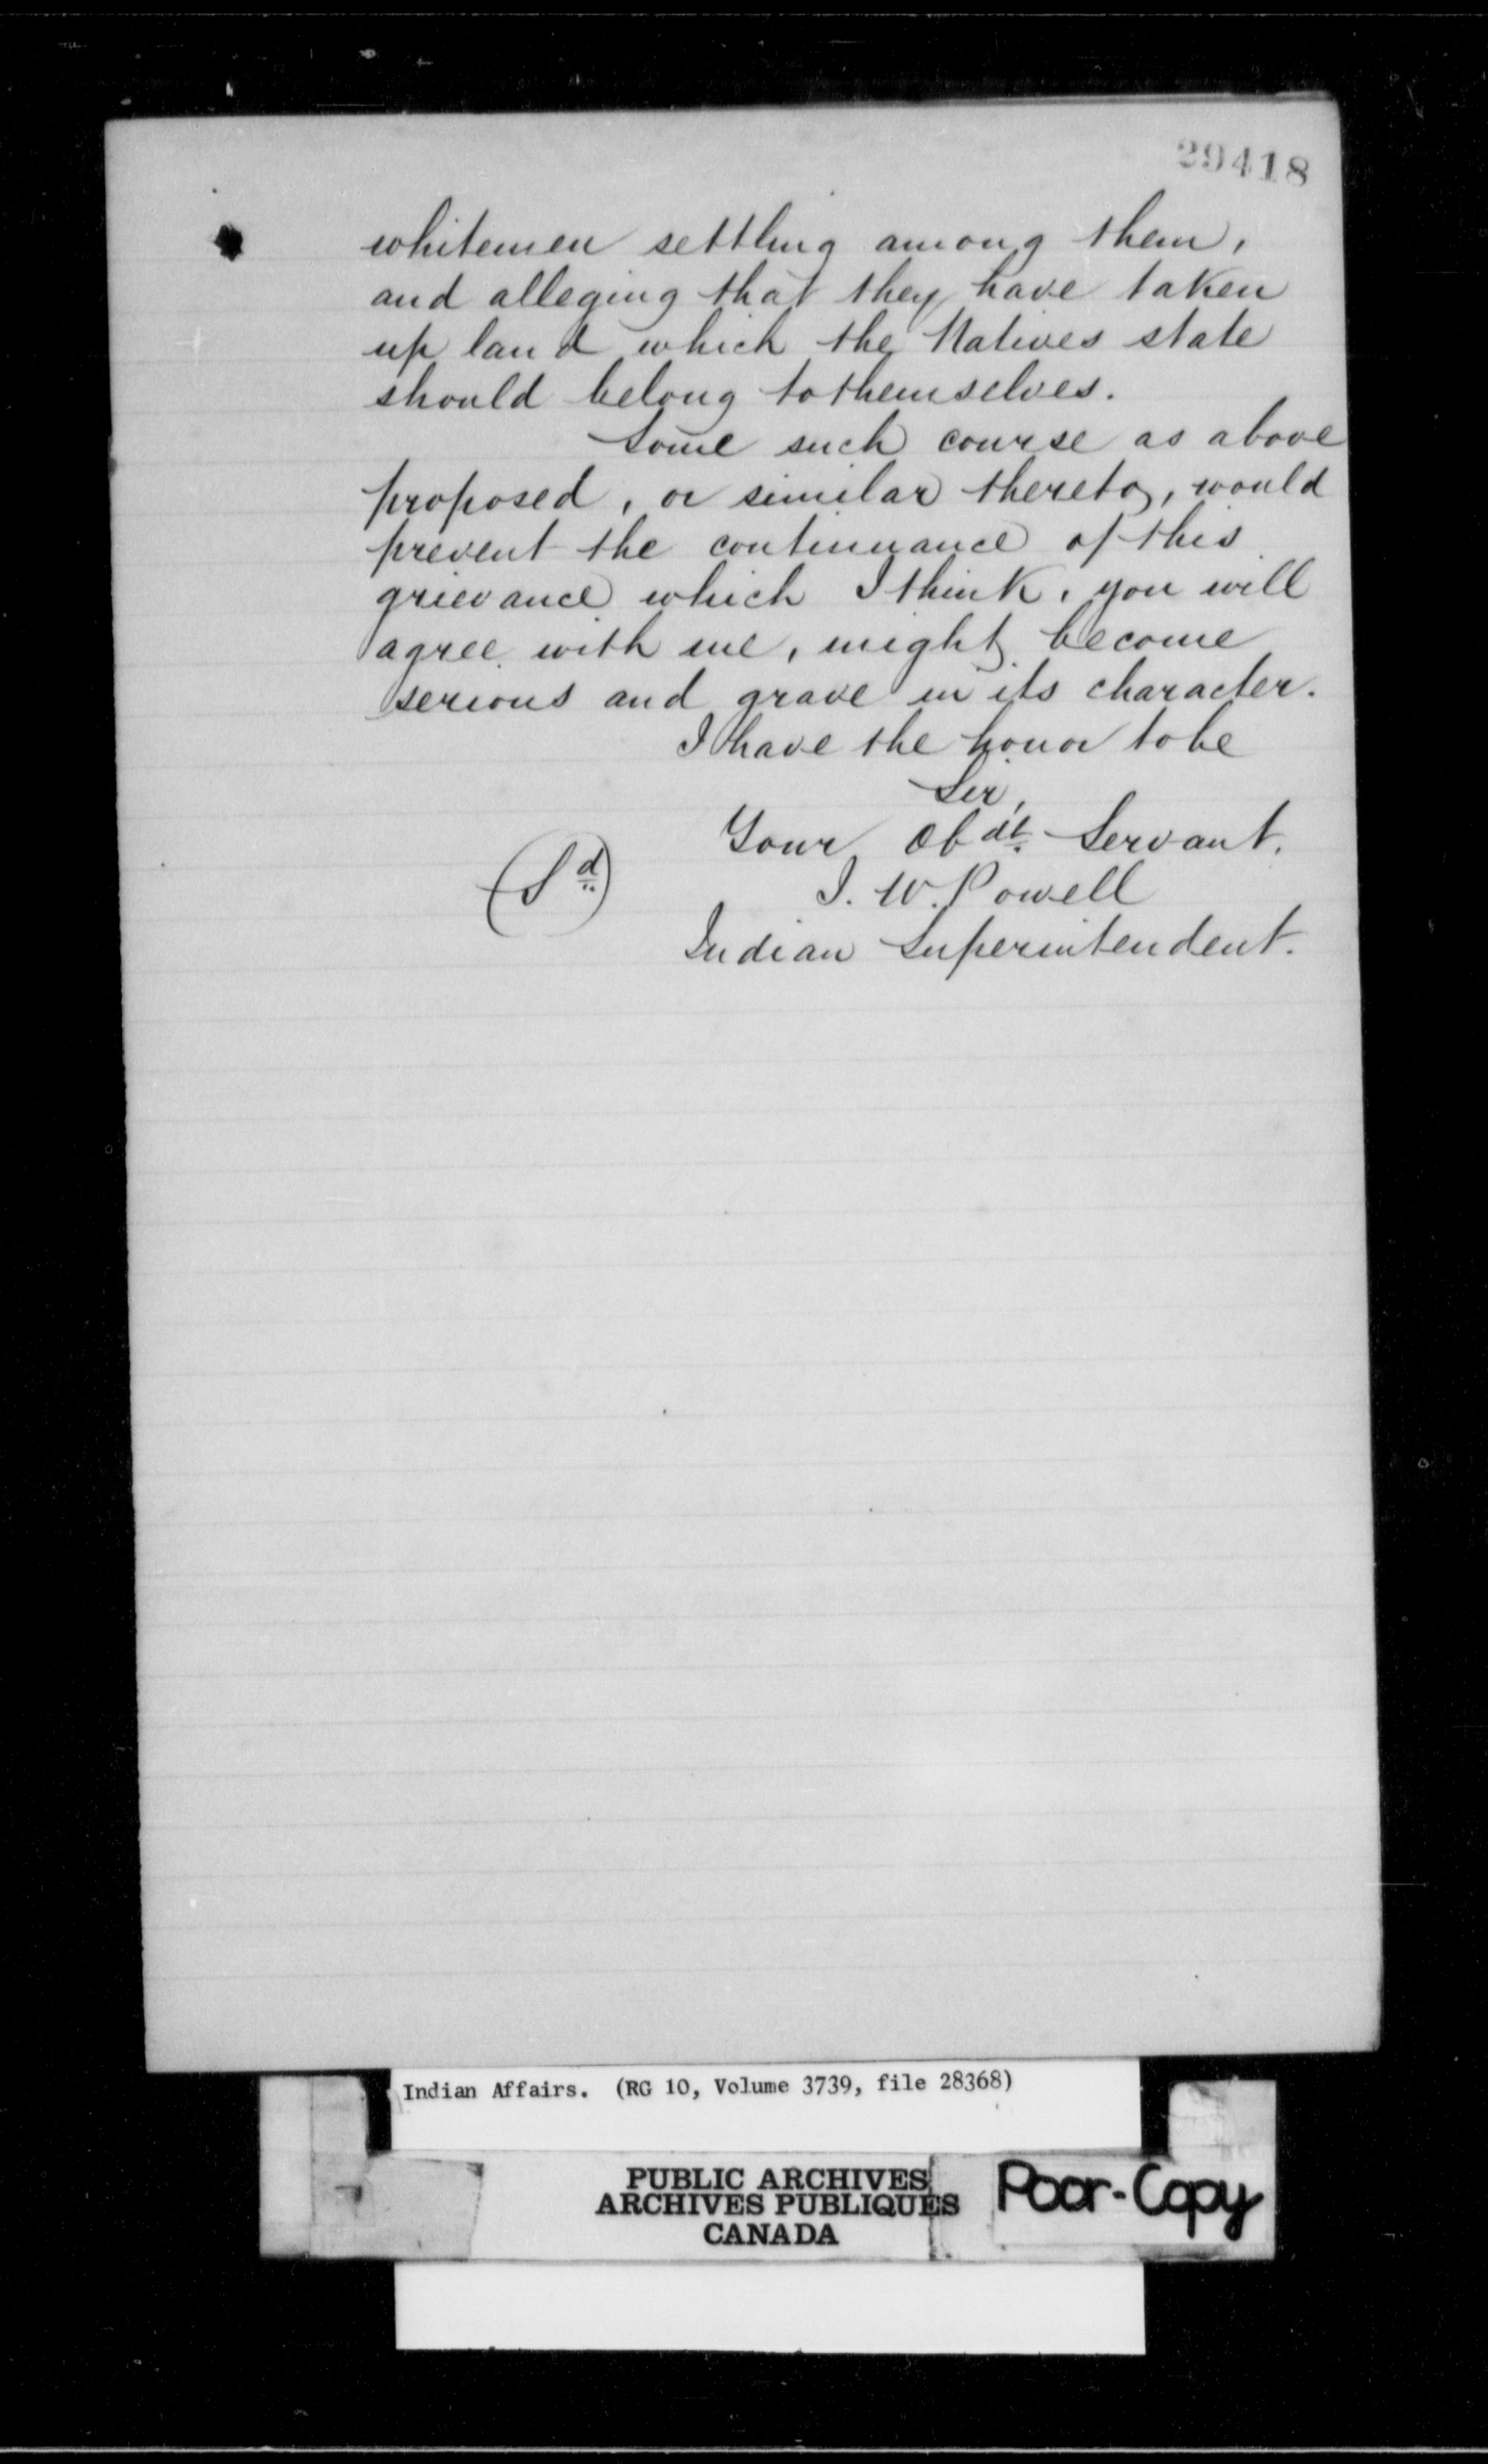 29418
whitemen settling among them,
and alleging that they have taken
up land which the Natives state
should belong to themselves.
Some such course as above
proposed, or similar thereto, would
prevent the continuance of this
grievance which I think, you will
agree with me, might become
serious and grave in its character.
I have the honor to be
Sir,
Your Obdt. Servant.
(Sd) I. W. Powell
Indian Superintendent.
Indian Affairs. (RG 10, Volume 3739, file 28368)
PUBLIC ARCHIVES
ARCHIVES PUBLIQUES
CANADA
Poor-Copy